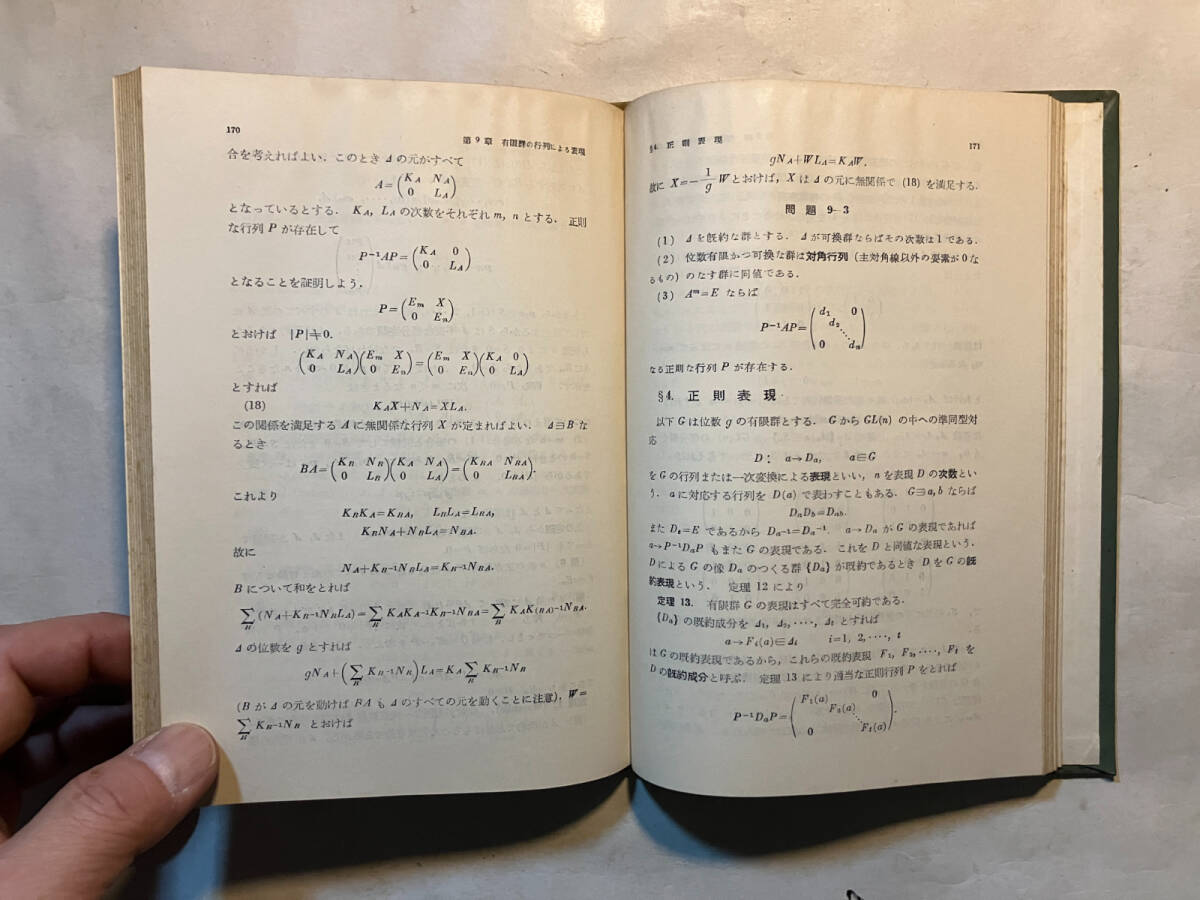 170
第9章 有限群の行列による表現
合を考えればよい.このとき Δ の元がすべて
A=(K_A N_A
0 L_A)
となっているとする. K_A, L_A の次数をそれぞれ m, n とする. 正則
な行列 P が存在して
P⁻¹AP=(K_A 0
0 L_A)
となることを証明しよう.
P=(E_m X
0 E_n)
とおけば |P|≠0.
(K_A N_A
0 L_A)(E_m X
0 E_n)=(E_m X
0 E_n)(K_A 0
0 L_A)
とすれば
(18) K_AX+N_A=XL_A.
この関係を満足する A に無関係な行列 X が定まればよい. Δ∋B な
るとき
BA=(K_B N_B
0 L_B)(K_A N_A
0 L_A)=(K_BA N_BA
0 L_BA).
これより
K_BK_A=K_BA, L_BL_A=L_BA,
K_BN_A+N_BL_A=N_BA.
故に
N_A+K_B⁻¹N_BL_A=K_B⁻¹N_BA.
B について和をとれば
∑_B (N_A+K_B⁻¹N_BL_A)=∑_B K_AK_A⁻¹K_B⁻¹N_BA=∑_B K_AK_(BA)⁻¹N_BA.
Δ の位数を g とすれば
gN_A+(∑_B K_B⁻¹N_B)L_A=K_A ∑_B K_B⁻¹N_B
(B が Δ の元を動けば BA も Δ のすべての元を動くことに注意). W=
∑_B K_B⁻¹N_B とおけば
§4. 正則表現
171
gN_A+WL_A=K_AW.
故に X=−1/g W とおけば, X は Δ の元に無関係で (18) を満足する.
問題 9–3
(1) Δ を既約な群とする. Δ が可換群ならばその次数は1である.
(2) 位数有限かつ可換な群は対角行列 (主対角線以外の要素が0な
るもの) のなす群に同値である.
(3) Aᵐ=E ならば
P⁻¹AP=(d₁ 0
d₂
⋱
0 d_n)
なる正則な行列 P が存在する.
§4. 正則表現
以下 G は位数 g の有限群とする. G から GL(n) の中への準同型対
応
D: a→D_a, a∈G
を G の行列または一次変換による表現といい, n を表現 D の次数とい
う. a に対応する行列を D(a) で表わすこともある. G∋a,b ならば
D_aD_b=D_ab.
また D_e=E であるから D_a⁻¹=D_a⁻¹. a→D_a が G の表現であれば
a→P⁻¹D_aP もまた G の表現である. これを D と同値な表現という.
D による G の像 D_a のつくる群 {D_a} が既約であるとき D を G の既
約表現という. 定理 12 により
定理 13. 有限群 G の表現はすべて完全可約である.
{D_a} の既約成分を Δ₁, Δ₂,····, Δ_t とすれば
a→F_i(a)∈Δ_i i=1, 2,····, t
は G の既約表現であるから, これらの既約表現 F₁, F₂,····, F_t を
D の既約成分と呼ぶ. 定理 13 により適当な正則行列 P をとれば
P⁻¹D_aP=(F₁(a) 0
F₂(a)
⋱
0 F_t(a)).